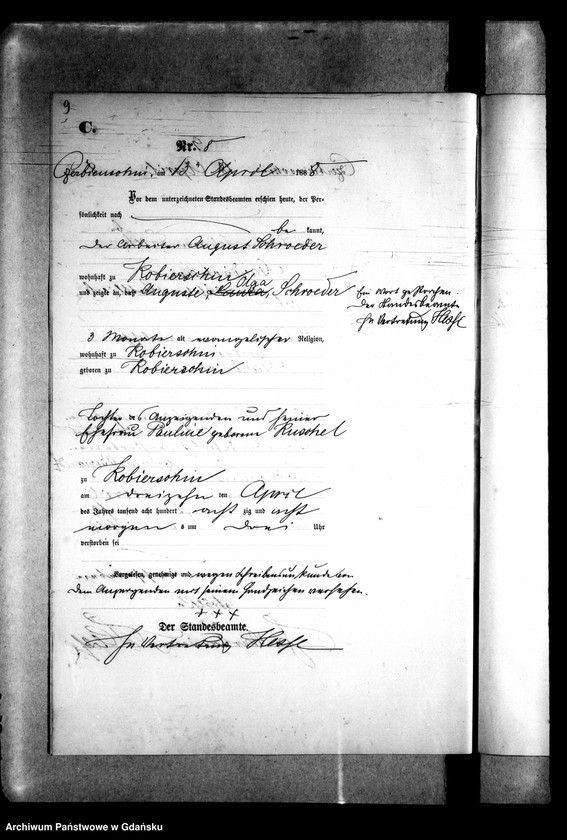 9
C.
Nr. 8
am 13 April 1888
Vor dem unterzeichneten Standesbeamten erschien heute, der Per-
sönlichkeit nach
be kannt,
der Arbeiter August Schroeder
wohnhaft zu Kobierschin
Olga
und zeigte an, daß Auguste Schroeder
Ein Wort gestrichen.
Der Standesbeamte
In Vertretung
3 Monate alt evangelischer Religion,
wohnhaft zu Kobierschin
geboren zu Kobierschin
Tochter des Anzeigenden und seiner
Ehefrau Pauline geborene Kuschel
zu Kobierschin
am dreizehn ten April
des Jahres tausend acht hundert acht zig und acht
morgens um drei Uhr
verstorben sei
Vorgelesen, genehmigt und wegen Schreibensunkunde von
dem Anzeigenden mit seinem Handzeichen versehen.
+ + +
Der Standesbeamte.
In Vertretung
Archiwum Państwowe w Gdańsku